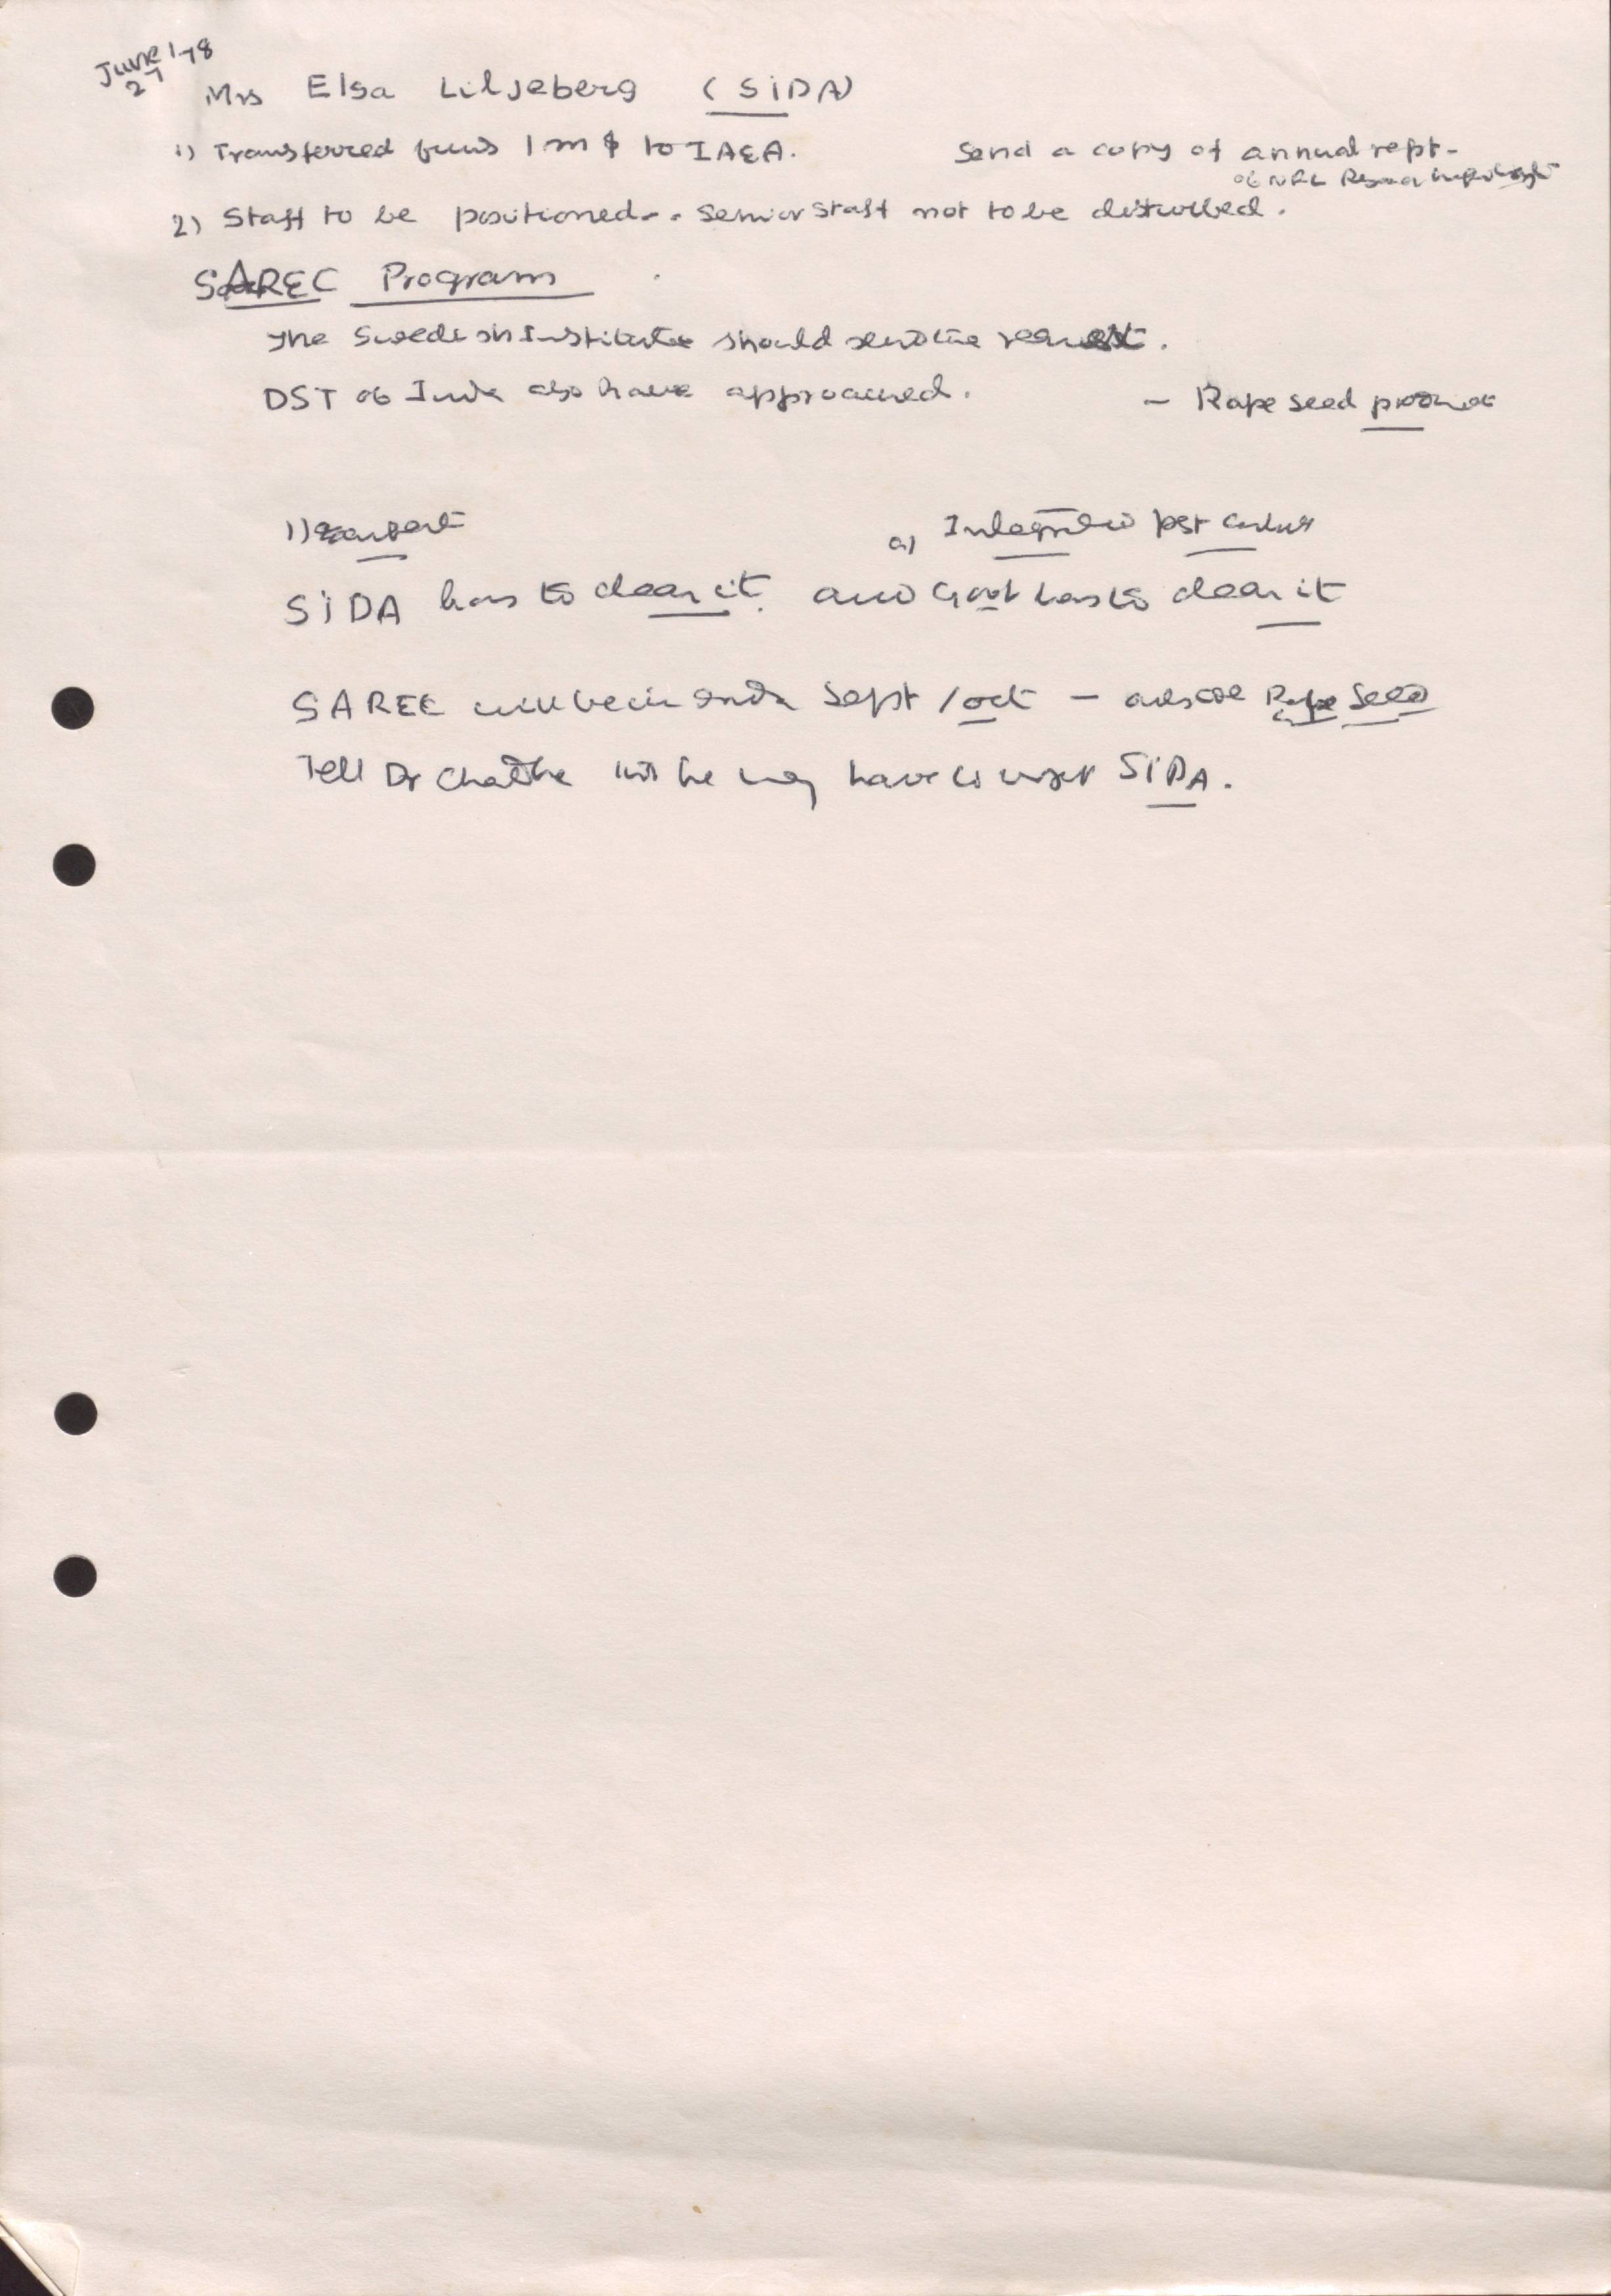 June 1 78
27
Mrs Elsa Liljeberg (SIDA)
1) Transferred funds 1 m $ to IAEA. Send a copy of annual rept-
of NRL Research
2) Staff to be positioned - . Senior Staff not to be disturbed.
SAREC Program
The Swedish Institute should send the request.
DST of India also have approached. - Rape seed
1) a) Integrated pest control
SIDA has to clear it. and Govt has to clear it
SAREC will be in India Sept / oct - Rape Seed
Tell Dr he may have to SIDA.